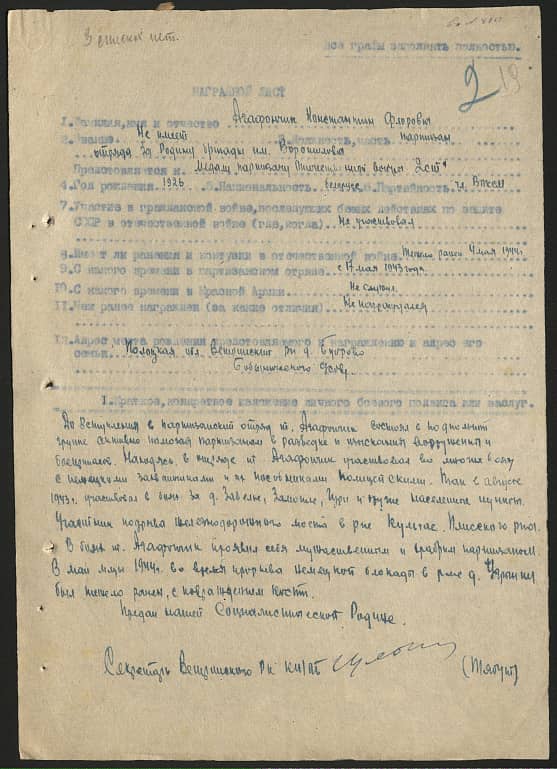 Все графы заполнять полностью.
2
19
НАГРАДНОЙ ЛИСТ
1. Фамилия, имя и отчество Агафончик Константин Флорович
2. Звание. Не имеет 3. Должность, часть. партизан
отряда За Родину бригады им. Ворошилова
Представляется к. Медали "партизану Отечественной войны 2 ст"
4. Год рождения. 1926 5. Национальность. белорус 6. Партийность. чл. ВЛКСМ
7. Участие в гражданской войне, последующих боевых действиях по защите
СССР в отечественной войне (где, когда). Не участвовал
8. Имеет ли ранения и контузии в отечественной войне. Тяжело ранен 4 мая 1944г.
9. С какого времени в партизанском отряде. с 17 мая 1943 года.
10. С какого времени в Красной Армии. Не служил.
11. Чем ранее награжден (за какие отличия). Не награждался
12. Адрес места рождения представляемого к награждению и адрес его
семьи. Полоцкая обл. Ветринский р-н д.
I. Краткое, конкретное изложение личного боевого подвига или заслуг.
До вступления в партизанский отряд т. Агафончик состоял в подпольной
группе активно помогая партизанам в разведке и изыскании вооружения и
боеприпасов. Находясь в отряде т. Агафончик участвовал во многих боях
с немецкими захватчиками и их пособниками полицейскими. Так в августе
1943г. участвовал в боях за д. Заболье, и другие населенные пункты.
Участник подрыва железнодорожного моста в р-не Плисского р-на.
В боях т. Агафончик проявил себя мужественным и храбрым партизаном.
В мае м-це 1944г. во время прорыва немецкой блокады в р-не д.
был тяжело ранен, с повреждением кости.
Предан нашей Социалистической Родине.
Секретарь Ветринского РК КП/б/Б